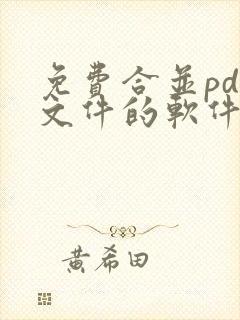 免費合並pd
文件的軟件
黃希田